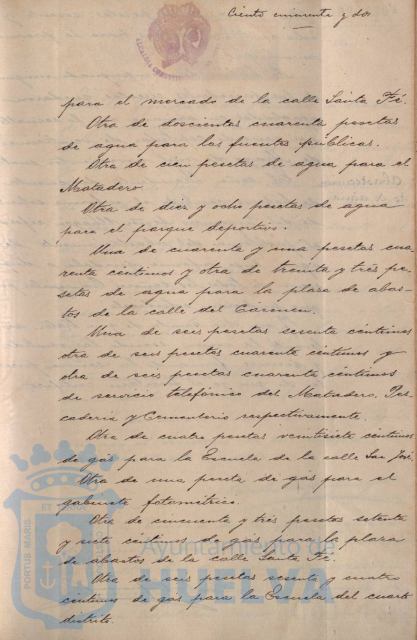 Ciento cincuenta y dos
para el mercado de la calle Santa Fé.
Otra de doscientas cuarenta pesetas
de agua para las fuentes públicas.
Otra de cien pesetas de agua para el
Matadero.
Otra de diez y ocho pesetas de agua
para el parque deportivo.
Una de cuarenta y una pesetas cua
renta céntimos y otra de treinta y tres pe
setas de agua para la plaza de abas
tos de la calle del Carmen.
Una de seis pesetas sesenta céntimos
otra de seis pesetas cuarenta céntimos y
otra de seis pesetas cuarenta céntimos
de servicio telefónico del Matadero, Pes
cadería y Cementerio respectivamente.
Otra de cuatro pesetas veintisiete céntimos
de gás para la Escuela de la calle San José.
Otra de una peseta de gás para el
gabinete fotométrico.
Otra de cincuenta y tres pesetas setenta
y siete céntimos de gás para la plaza
de abastos de la calle Santa Fé.
Otra de seis pesetas sesenta y cuatro
céntimos de gás para la Escuela del cuarto
distrito.
PORTUS MARIS ET
Ayuntamiento de
HUELVA